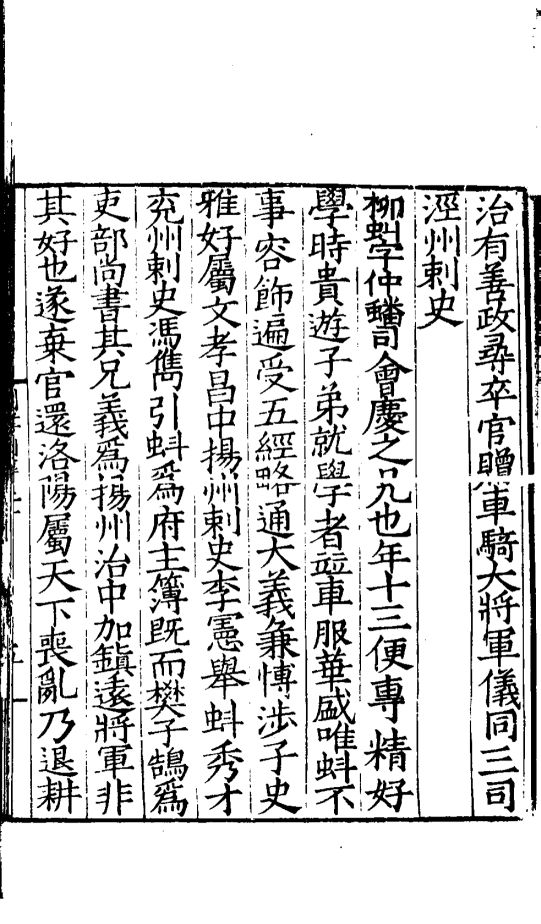 治有善政尋卒官贈車騎大將軍儀同三司
涇州刺史
柳虯字仲蟠司會慶之兄也年十三便專精好
學時貴遊子弟就學者並車服華盛唯虯不
事容飾遍受五經略通大義兼愽渉子史
雅好屬文孝昌中揚州刺史李憲舉虯秀才
兖州刺史馮儁引虯爲府主簿既而樊子鵠爲
吏部尚書其兄義爲揚州治中加鎮遠將軍非
其好也遂棄官還洛陽屬天下喪亂乃退耕